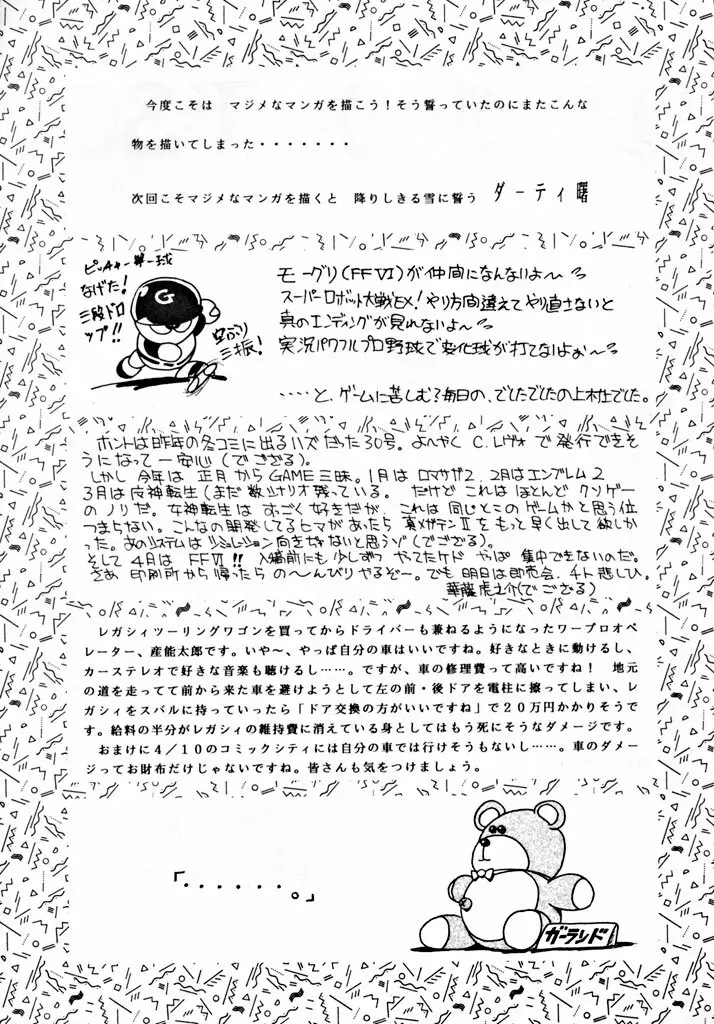 今度こそは マジメなマンガを描こう！そう誓っていたのにまたこんな
物を描いてしまった・・・・・・・
次回こそマジメなマンガを描くと 降りしきる雪に誓う ダーティ曙
ピッチャー第一球
なげた！
三段ドロ
ップ!!
G
空ぶり
三振！
モーグリ(FFⅥ)が仲間になんないよ〜
スーパーロボット大戦EX！やり方間違えてやり直さないと
真のエンディングが見れないよ〜
実況パワフルプロ野球で変化球が打てないよぉ〜
‥‥と、ゲームに苦しむ毎日の、でしたでしたの上木でした。
ホントは昨年の冬コミに出るハズだった30号。よーやく C.レヴォ で発行できそ
うになって一安心(でござる)。
しかし 今年は 正月からGAME三昧。1月は ロマサガ2、2月はエンブレム2
3月は女神転生(まだ数シナリオ残っている。 だけど これは ほとんど クソゲー
のノリだ。女神転生は すごく 好きだが、これは同じとこのゲームかと思う位
つまらない。こんなの開発してるヒマがあったら 真メガテンⅡを もっと早く出して欲しか
った。あのシステムは シミュレーション向きぢゃないと思うゾ(でござる)。
そして 4月は FFⅥ!! 入稿前にも少しずつ やってたケド やっぱ 集中できないのだ。
さあ 印刷所から帰ったら の〜んびりやるぞー。でも 明日は即売会。チト 悲しひ。
華龍虎之介(でござる)
レガシィツーリングワゴンを買ってからドライバーも兼ねるようになったワープロオペ
レーター、産能太郎です。いや〜、やっぱ自分の車はいいですね。好きなときに動けるし、
カーステレオで好きな音楽も聴けるし……。ですが、車の修理費って高いですね！ 地元
の道を走ってて前から来た車を避けようとして左の前・後ドアを電柱に擦ってしまい、レ
ガシィをスバルに持っていったら「ドア交換の方がいいですね」で２０万円かかりそうで
す。給料の半分がレガシィの維持費に消えている身としてはもう死にそうなダメージです。
おまけに４／１０のコミックシティには自分の車では行けそうもないし……。車のダメー
ジってお財布だけじゃないですね。皆さんも気をつけましょう。
「・・・・・・。」
ガーランド